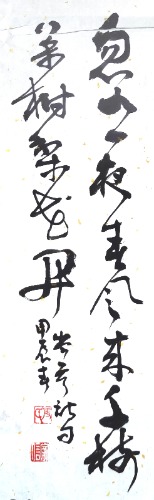 忽如一夜春风来千树
万树梨花开
岑参诗句
甲辰春